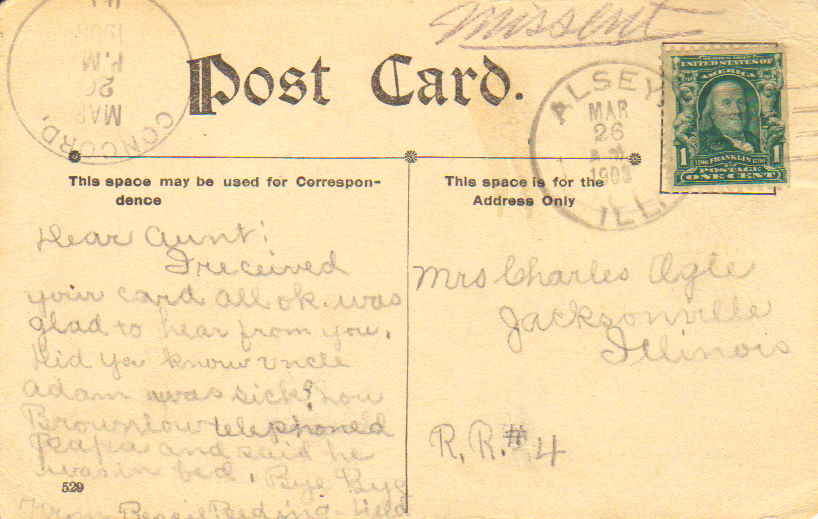 Missent
Post Card.
CONCORD,
MAR
20
P.M
ALSEY,
MAR
26
ILL.
UNITED STATES OF
AMERICA
1 FRANKLIN 1
POSTAGE
ONE CENT
This space may be used for Correspon-
dence
Dear Aunt;
I received
your card all ok. was
glad to hear from you.
Did you know uncle
Adam was sick? Lou
Brownlow telephoned
Papa and said he
was in bed. Bye Bye
From
529
This space is for the
Address Only
Mrs Charles Ogle
Jacksonville
Illinois
R.R.#4